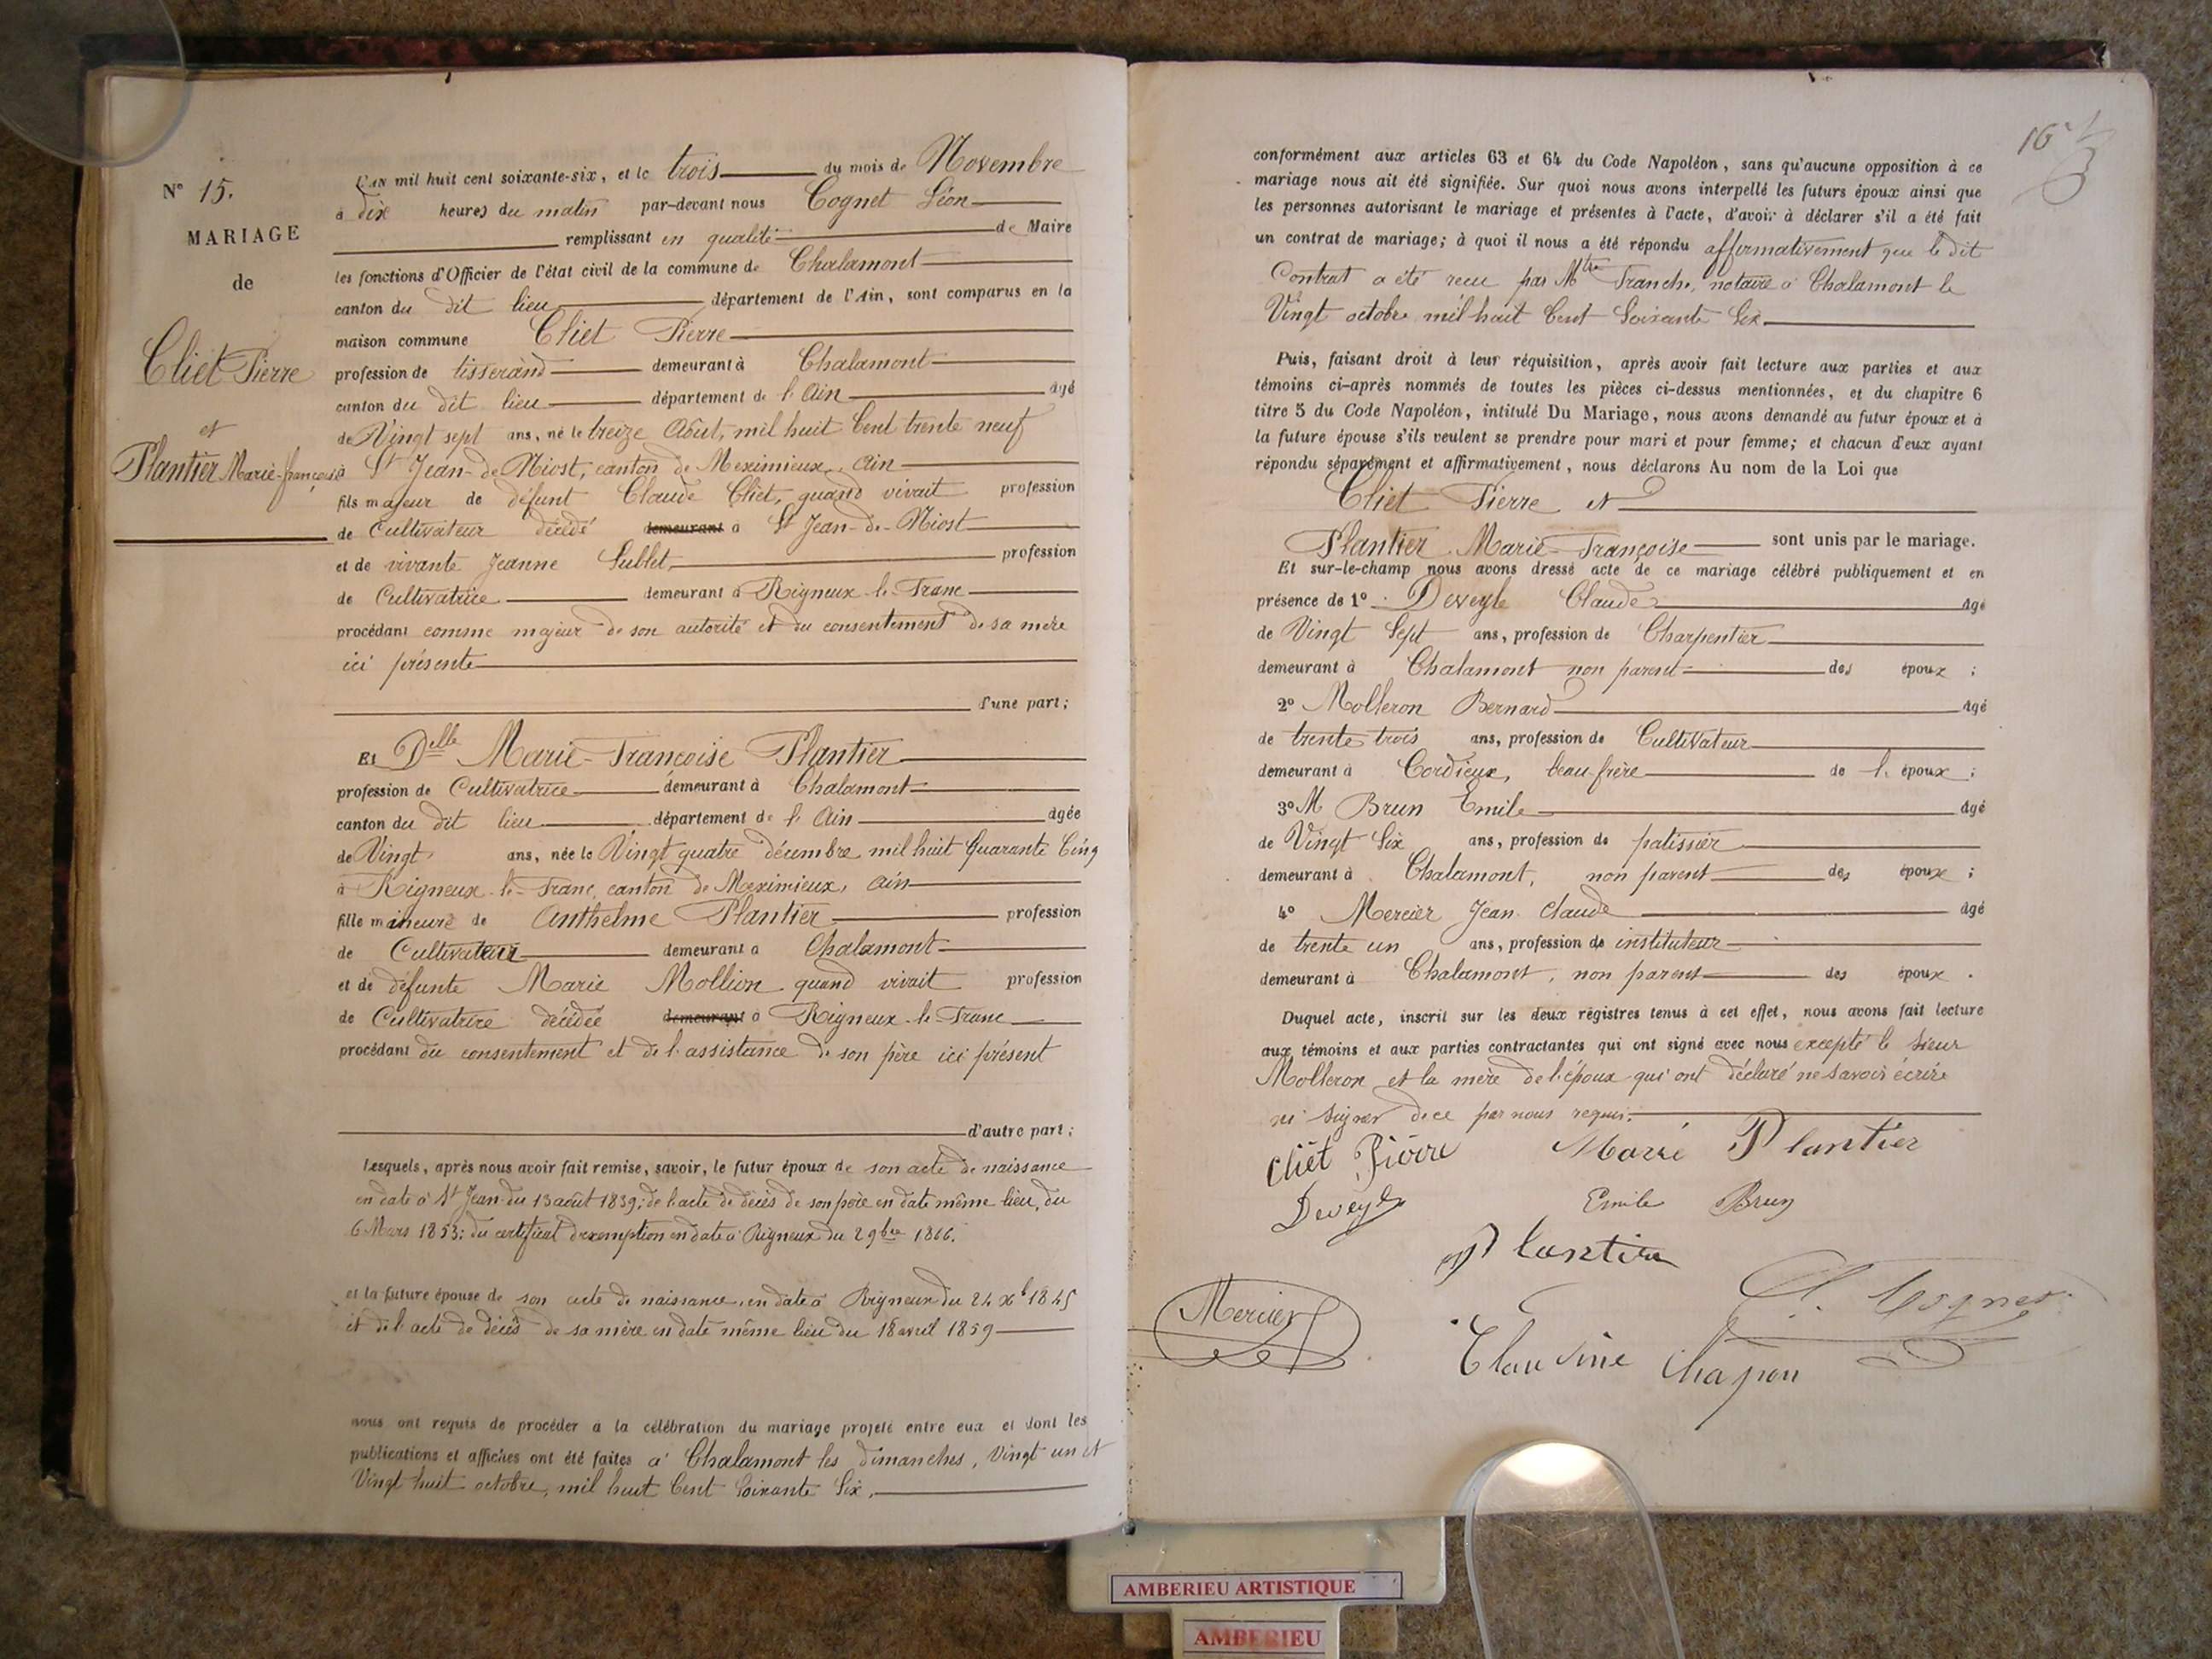 N° 15.
MARIAGE
de
Cliet Pierre
et
Plantier Marie-françoise
L'AN mil huit cent soixante-six, et le trois du mois de Novembre
à dix heures du matin par-devant nous Cognet Léon
remplissant en qualité de Maire
les fonctions d'Officier de l'état civil de la commune de Chalamont
canton du dit lieu département de l'Ain, sont comparus en la
maison commune Cliet Pierre
profession de tisserand demeurant à Chalamont
canton du dit lieu département de l'Ain agé
de Vingt sept ans, né le treize Août, mil huit Cent trente neuf
à St Jean-de-Niost, canton de Meximieux, Ain
fils majeur de défunt Claude Cliet, quand vivait profession
de Cultivateur décédé demeurant à St Jean-de-Niost
et de vivante Jeanne Sublet, profession
de Cultivatrice demeurant à Rigneux-le-Franc
procédant comme majeur de son autorité et du consentement de sa mère
ici présente
d'une part;
Et Delle Marie-Françoise Plantier
profession de Cultivatrice demeurant à Chalamont
canton du dit lieu département de l'Ain agée
de Vingt ans, née le Vingt quatre décembre mil huit Quarante Cinq
à Rigneux-le-Franc, canton de Meximieux, Ain
fille mineure de Anthelme Plantier profession
de Cultivateur demeurant à Chalamont
et de défunte Marie Mollion quand vivait profession
de Cultivatrice décédée demeurant à Rigneux-le-Franc
procédant du consentement et de l'assistance de son père ici présent
d'autre part;
Lesquels, après nous avoir fait remise, savoir, le futur époux de son acte de naissance
en date à St Jean du 13 août 1839; de l'acte de décès de son père en date même lieu, du
6 Mars 1853; du certificat d'exemption en date à Rigneux du 2 9bre 1866.
et la future épouse de son acte de naissance, en date à Rigneux du 24 Xb 1845
et de l'acte de décès de sa mère en date même lieu du 18 avril 1859
nous ont requis de procéder à la célébration du mariage projeté entre eux et dont les
publications et affiches ont été faites à Chalamont les dimanches, Vingt un et
Vingt huit octobre, mil huit Cent Soixante Six,
16
conformément aux articles 63 et 64 du Code Napoléon, sans qu'aucune opposition à ce
mariage nous ait été signifiée. Sur quoi nous avons interpellé les futurs époux ainsi que
les personnes autorisant le mariage et présentes à l'acte, d'avoir à déclarer s'il a été fait
un contrat de mariage; à quoi il nous a été répondu affirmativement que le dit
Contrat a été recu par Mtre Franche, notaire à Chalamont le
Vingt octobre mil huit Cent Soixante Six
Puis, faisant droit à leur réquisition, après avoir fait lecture aux parties et aux
témoins ci-après nommés de toutes les pièces ci-dessus mentionnées, et du chapitre 6
titre 5 du Code Napoléon, intitulé Du Mariage, nous avons demandé au futur époux et à
la future épouse s'ils veulent se prendre pour mari et pour femme; et chacun d'eux ayant
répondu séparément et affirmativement, nous déclarons Au nom de la Loi que
Cliet Pierre et
Plantier Marie-Françoise sont unis par le mariage.
Et sur-le-champ nous avons dressé acte de ce mariage célébré publiquement et en
présence de 1° Deveyle Claude Agé
de Vingt Sept ans, profession de Charpentier
demeurant à Chalamont non parent des époux ;
2° Molleron Bernard Agé
de trente trois ans, profession de Cultivateur
demeurant à Cordieux, beau-frère de l'époux ;
3° M Brun Emile Agé
de Vingt Six ans, profession de patissier
demeurant à Chalamont, non parent des époux ;
4° Mercier Jean Claude agé
de trente un ans, profession de instituteur
demeurant à Chalamont, non parent des époux .
Duquel acte, inscrit sur les deux régistres tenus à cet effet, nous avons fait lecture
aux témoins et aux parties contractantes qui ont signé avec nous excepté le Sieur
Molleron et la mère de l'époux qui ont déclaré ne savoir écrire
ni signer de ce par nous requis.
Cliet Pierre Marie Plantier
Deveyle Emile Brun
Plantier
Mercier L. Cognet
Claudine Chapon
AMBERIEU ARTISTIQUE
AMBERIEU